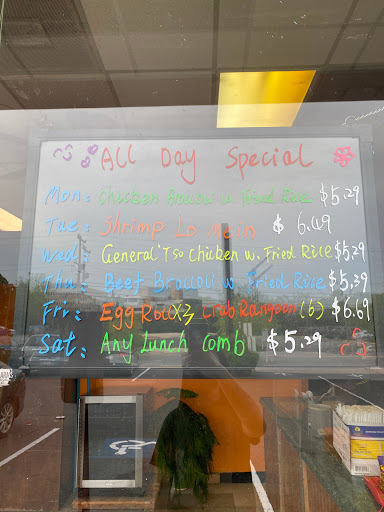 All Day Special
Mon: Chicken Broccoli w. Fried Rice $5.29
Tue: Shrimp Lo mein $ 6.49
Wed: General'Tso Chicken w. Fried Rice $5.29
Thu: Beef Broccoli w. Fried Rice $5.39
Fri: Egg Roll X2 Crab Rangoon (6) $6.69
Sat: Any Lunch Comb $5.29